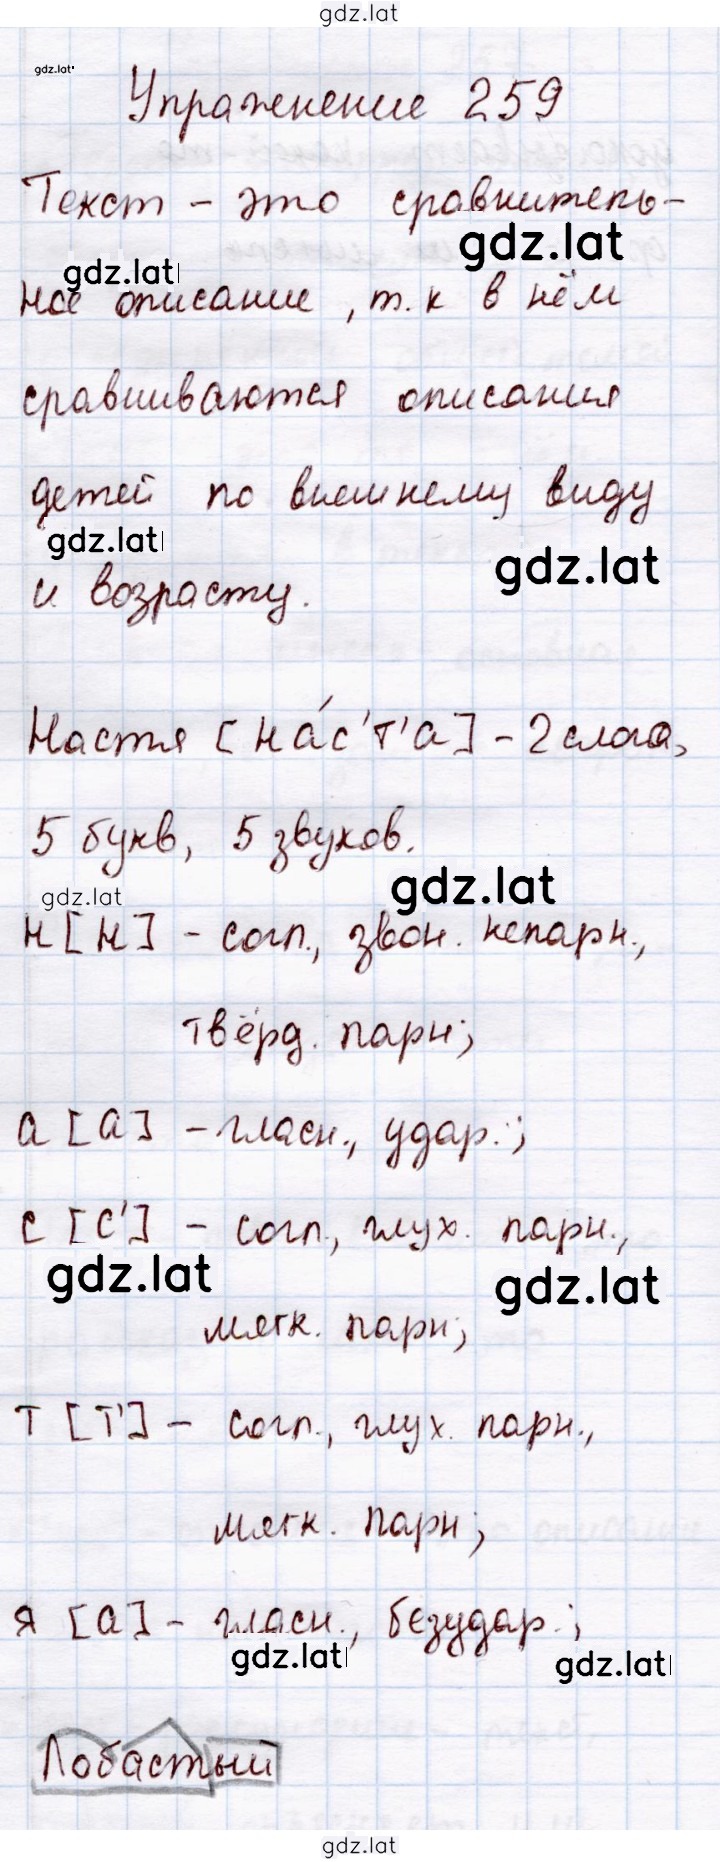 gdz.lat
gdz.lat
Упражнение 259
Текст - это сравнитель-
gdz.lat
gdz.lat
ное описание, т.к в нём
сравниваются описания
детей по внешнему виду
gdz.lat
gdz.lat
и возрасту.
Настя [на́с'т'а] - 2 слога,
5 букв, 5 звуков.
gdz.lat
gdz.lat
н [н] - согл., звон. непарн.,
твёрд. парн;
а [а] - гласн., удар.;
с [с'] - согл., глух. парн.,
gdz.lat
gdz.lat
мягк. парн;
т [т'] - согл., глух. парн.,
мягк. парн;
я [а] - гласн., безудар.;
gdz.lat
gdz.lat
Лобастый
gdz.lat